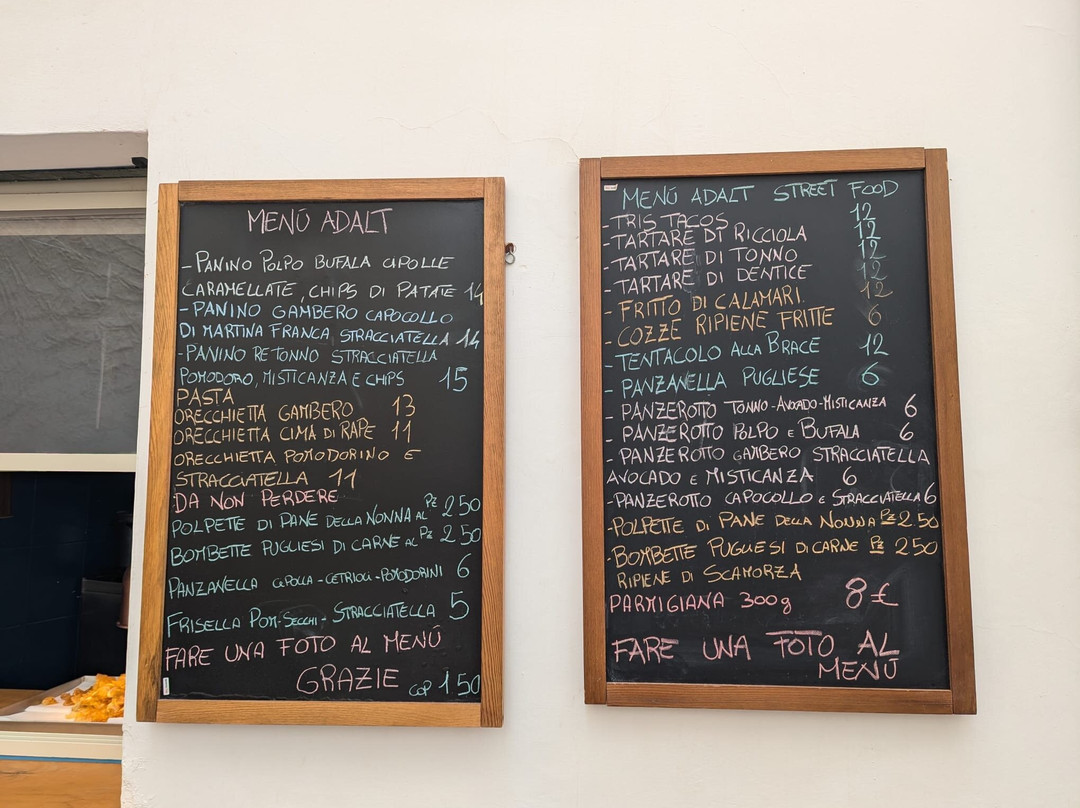 MENÚ ADALT
- PANINO POLPO BUFALA CIPOLLE
CARAMELLATE, CHIPS DI PATATE 14
- PANINO GAMBERO CAPOCOLLO
DI MARTINA FRANCA STRACCIATELLA 14
- PANINO RE TONNO STRACCIATELLA
POMODORO, MISTICANZA E CHIPS 15
PASTA
ORECCHIETTA GAMBERO 13
ORECCHIETTA CIMA DI RAPE 11
ORECCHIETTA POMODORINO E
STRACCIATELLA 11
DA NON PERDERE
POLPETTE DI PANE DELLA NONNA AL PZ 2 50
BOMBETTE PUGLIESI DI CARNE AL PZ 2 50
PANZANELLA CIPOLLA - CETRIOLI - POMODORINI 6
FRISELLA POM-SECCHI - STRACCIATELLA 5
FARE UNA FOTO AL MENÚ
GRAZIE COP 1 50
MENÚ ADALT STREET FOOD
- TRIS TACOS 12
- TARTARE DI RICCIOLA 12
- TARTARE DI TONNO 12
- TARTARE DI DENTICE 12
- FRITTO DI CALAMARI. 12
- COZZE RIPIENE FRITTE 6
- TENTACOLO ALLA BRACE 12
- PANZANELLA PUGLIESE 6
- PANZEROTTO TONNO-AVOCADO-MISTICANZA 6
- PANZEROTTO POLPO E BUFALA 6
- PANZEROTTO GAMBERO STRACCIATELLA
AVOCADO E MISTICANZA 6
- PANZEROTTO CAPOCOLLO E STRACCIATELLA 6
- POLPETTE DI PANE DELLA NONNA PZ 2.50
- BOMBETTE PUGLIESI DI CARNE PZ 2 50
RIPIENE DI SCAMORZA
PARMIGIANA 300g 8 €
FARE UNA FOTO AL
MENÚ